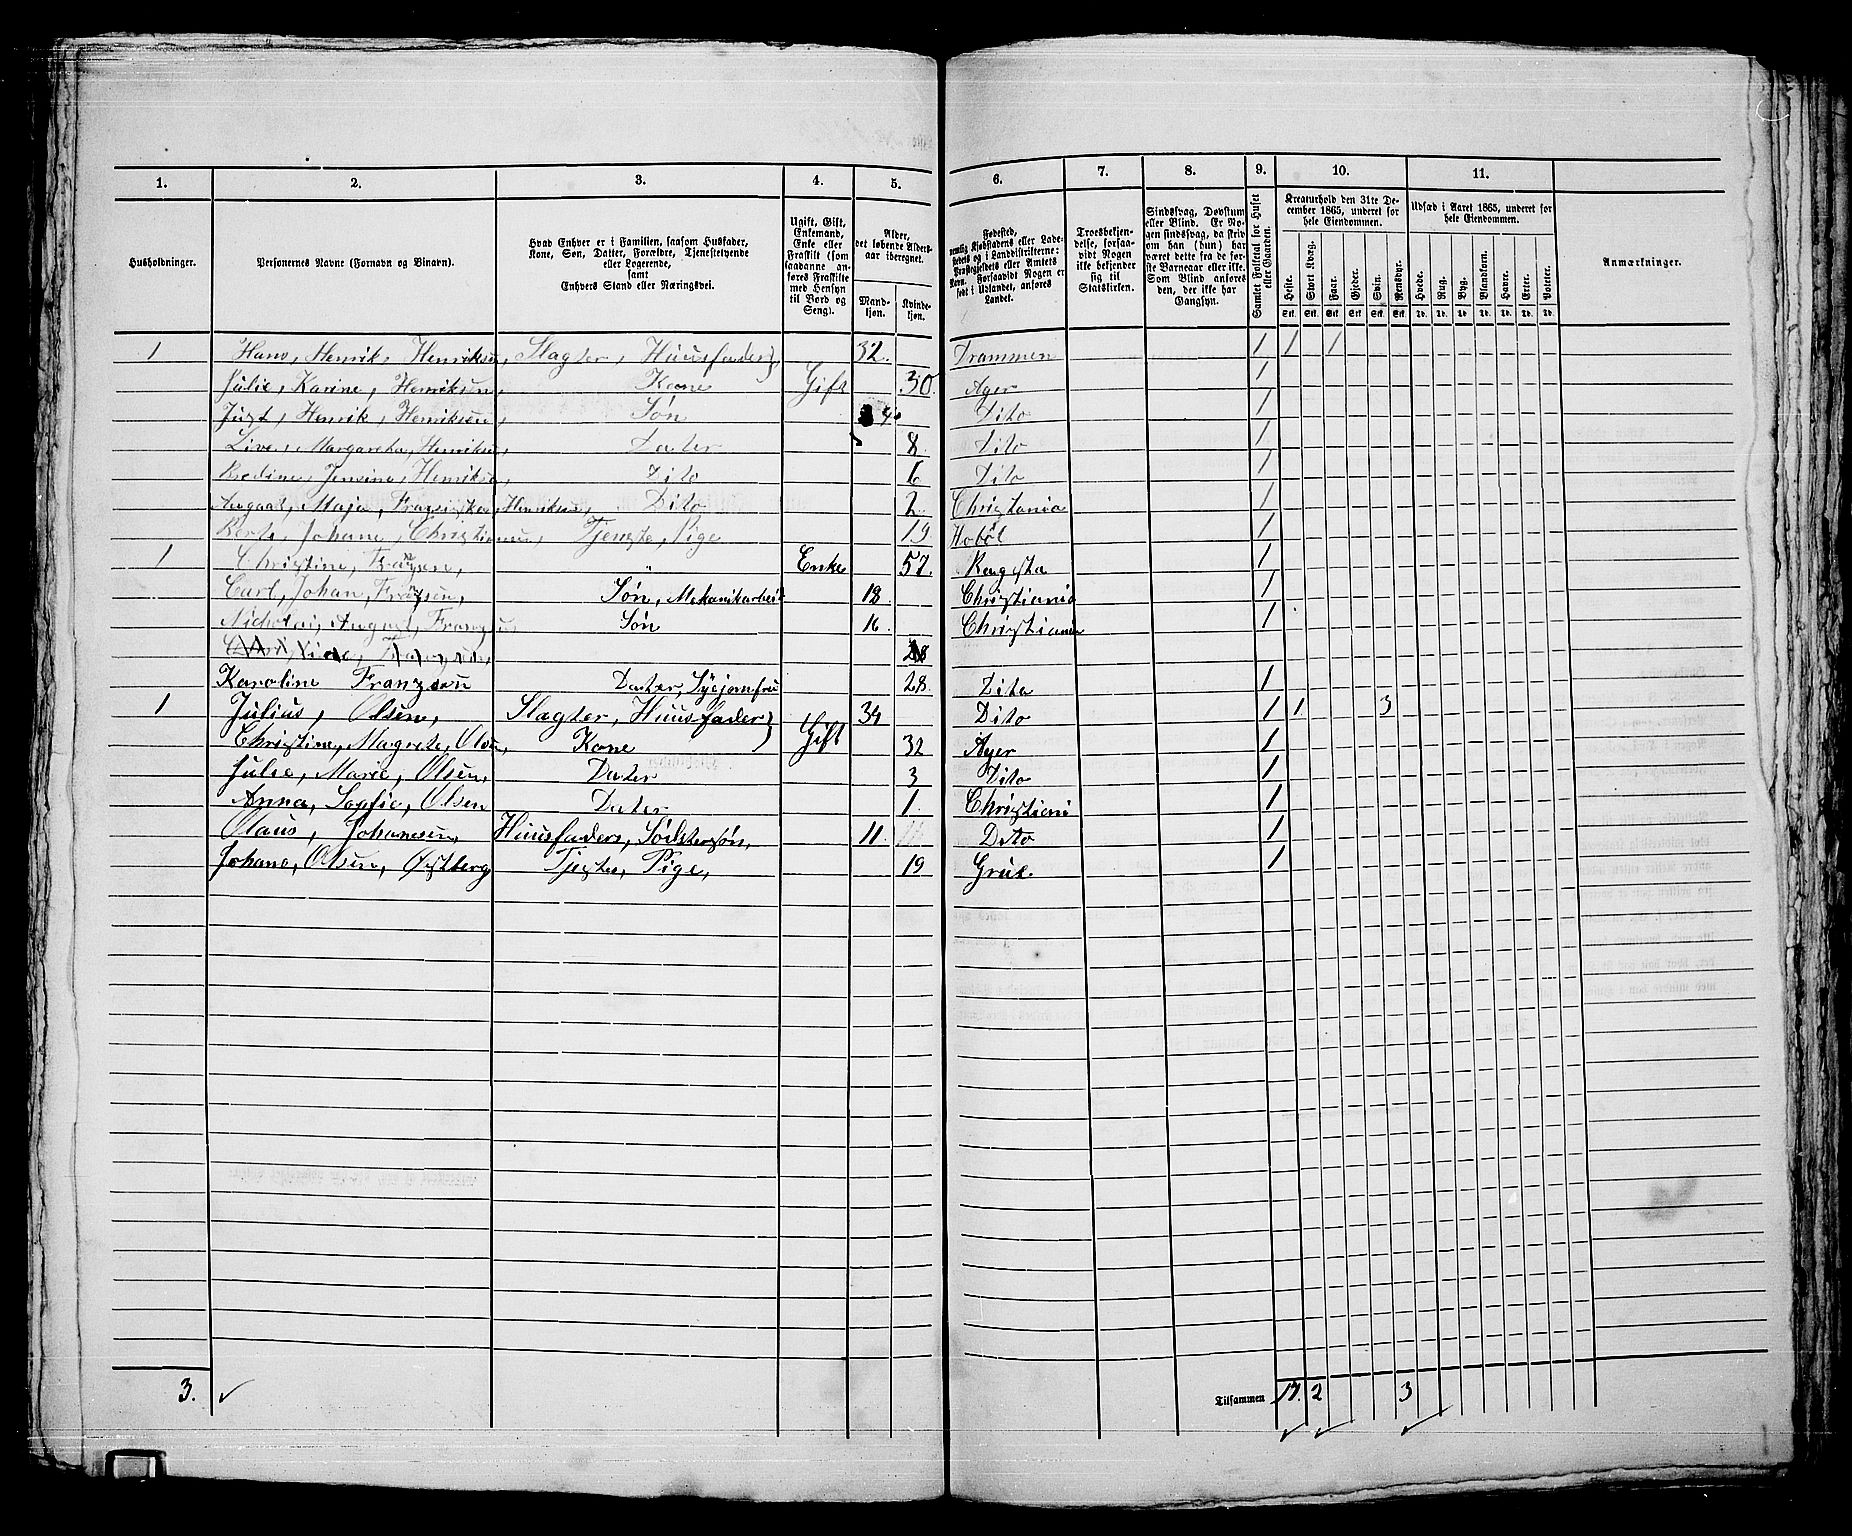 1. 2. 3. 4. 5. 6. 7. 8. 9. 10. 11.
Husholdninger.
Personernes Navne (Fornavn og Binavn).
Hvad Enhver er i Familien, saasom Husfader, Kone, Søn, Datter, Forældre, Tjenestetyende eller Logerende, samt Enhvers Stand eller Næringsvei.
Ugift, Gift, Enkemand, Enke eller Fraskilt (som saadanne anføres Fraskilte med Hensyn til Bord og Seng).
Alder, det løbende Alders-aar iberegnet.
Mand-kjøn. Kvinde-kjøn.
Fødested, nemlig Kjøbstadens eller Ladestedets og i Landdistrikterne: Præstegjeldets eller Amtets Navn. Forsaavidt Nogen er født i Udlandet, anføres Landet.
Troesbekjendelse, forsaavidt Nogen ikke bekjender sig til Statskirken.
Sindssvag, Døvstum eller Blind. Er Nogen sindssvag, da skrives om han (hun) har været dette fra de første Barneaar eller ikke. Som Blind anføres den, der ikke har Gangsyn.
Samlet Folketal for Huset eller Gaarden.
Kreaturhold den 31te December 1865, underet for hele Eiendommen.
Heste. Stort Kvæg. Faar. Gjeder. Svin. Rensdyr.
Udsæd i Aaret 1865, underet for hele Eiendommen.
Hvede. Rug. Byg. Blandkorn. Havre. Erter. Poteter.
Anmærkninger.
1 Hans, Henrik, Henriksen, Slagter, Huusfader 32. Drammen 1 1 1
Julie, Karine, Henriksen, Kone Gift 30. Ager 1
Just, Henrik, Henriksen, Søn Dito 1
Live, Margaretha, Henriksen, Dater 8. Dito 1
Bodine, Jensine, Henriksen, Dito 6 Dito 1
Maja, Henriksen, Dito 2. Christania 1
Johane, Tjenste, Pige 19 Hobøl 1
1 Christine, Franzen, " Enke 57. 1
Carl, Johan, Franzen, Søn, Mekanikarbeid 18 Christiania 1
Nicholai, August, Franzen, Søn 16 Christiania 1
Karoline Franzsen Dater, Syejomfru 28. Dito 1
1 Julius, Olsen, Slagter, Huusfader 34 Dito 1 1 3
Christine, Magrete, Olsen, Kone Gift 32 Ager 1
Julie, Marie, Olsen, Dater 3 Dito 1
Anna, Sophie, Olsen Dater 1. Christiani 1
Olaus, Johanesen, Huusfaders, Södstersön, 11. Dito 1
Johane, Olsen, Østberg Tjester, Pige, 19 Grue. 1
3. Tilsammen 17. 2 3